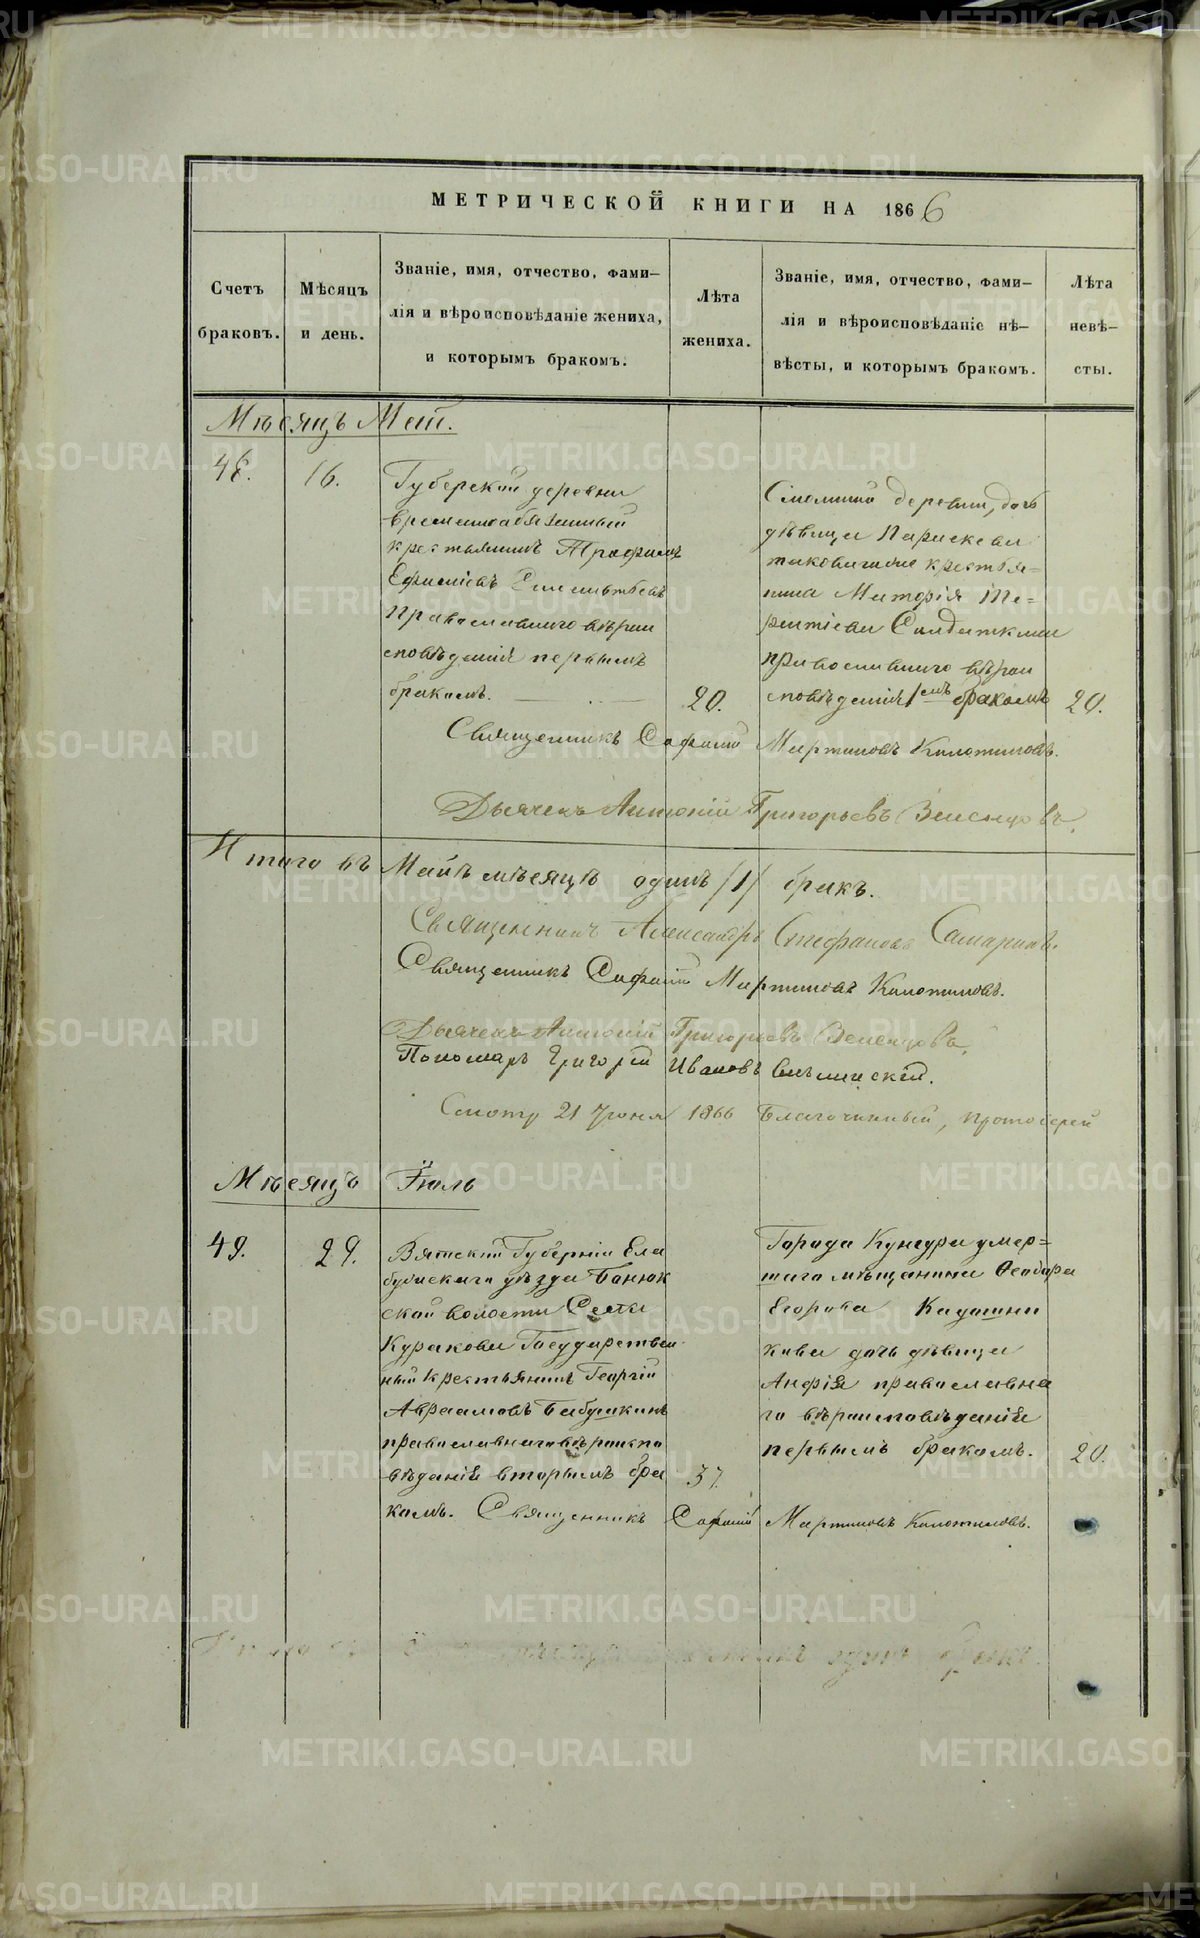 МЕТРИЧЕСКОЙ КНИГИ НА 1866
Счетъ
браковъ.
Мѣсяцъ
и день.
Званіе, имя, отчество, фами-
лія и вѣроисповѣданіе жениха,
и которымъ бракомъ.
Лѣта
жениха.
Званіе, имя, отчество, фами-
лія и вѣроисповѣданіе нѣ-
вѣсты, и которымъ бракомъ.
Лѣта
невѣ-
сты.
Мѣсяцъ Май.
48.
16.
Губерской деревни
временнообязанный
крестьянинъ Трофимъ
Ефиміевъ
православнаго вѣрои
сповѣданія первымъ
бракомъ.
20.
деревни, дочь
дѣвица Параскева
таковагоже крестья-
нина Те-
рентіева Солдаткина
православнаго вѣрои
сповѣданія 1емъ бракомъ
20.
Священникъ Мартиновъ
Дьячекъ Антоній Григорьевъ
Итого въ Маѣ мѣсяцѣ одинъ /1/ бракъ.
Священникъ Александръ Стефановъ
Священникъ Мартиновъ
Дьячекъ Антоній Григорьевъ
Пономарь Григорій Ивановъ
21 Іюня 1866 Благочинный, протоіерей
Мѣсяцъ Іюль
49.
29.
Вятской Губерніи Ела
бужскаго уѣзда
ской волости
Куракова Государствен
ный крестьянинъ Георгій
Авраамовъ Бабушкинъ
православнаго вѣроиспо
вѣданія вторымъ бра
комъ.
37.
Города Кунгура умер=
шаго мѣщанина Ѳеодора
Егорова Кадошни
кова дочь дѣвица
Анфія православна
го вѣроисповѣданія
первымъ бракомъ.
20.
Священникъ Мартиновъ
METRIKI.GASO-URAL.RU